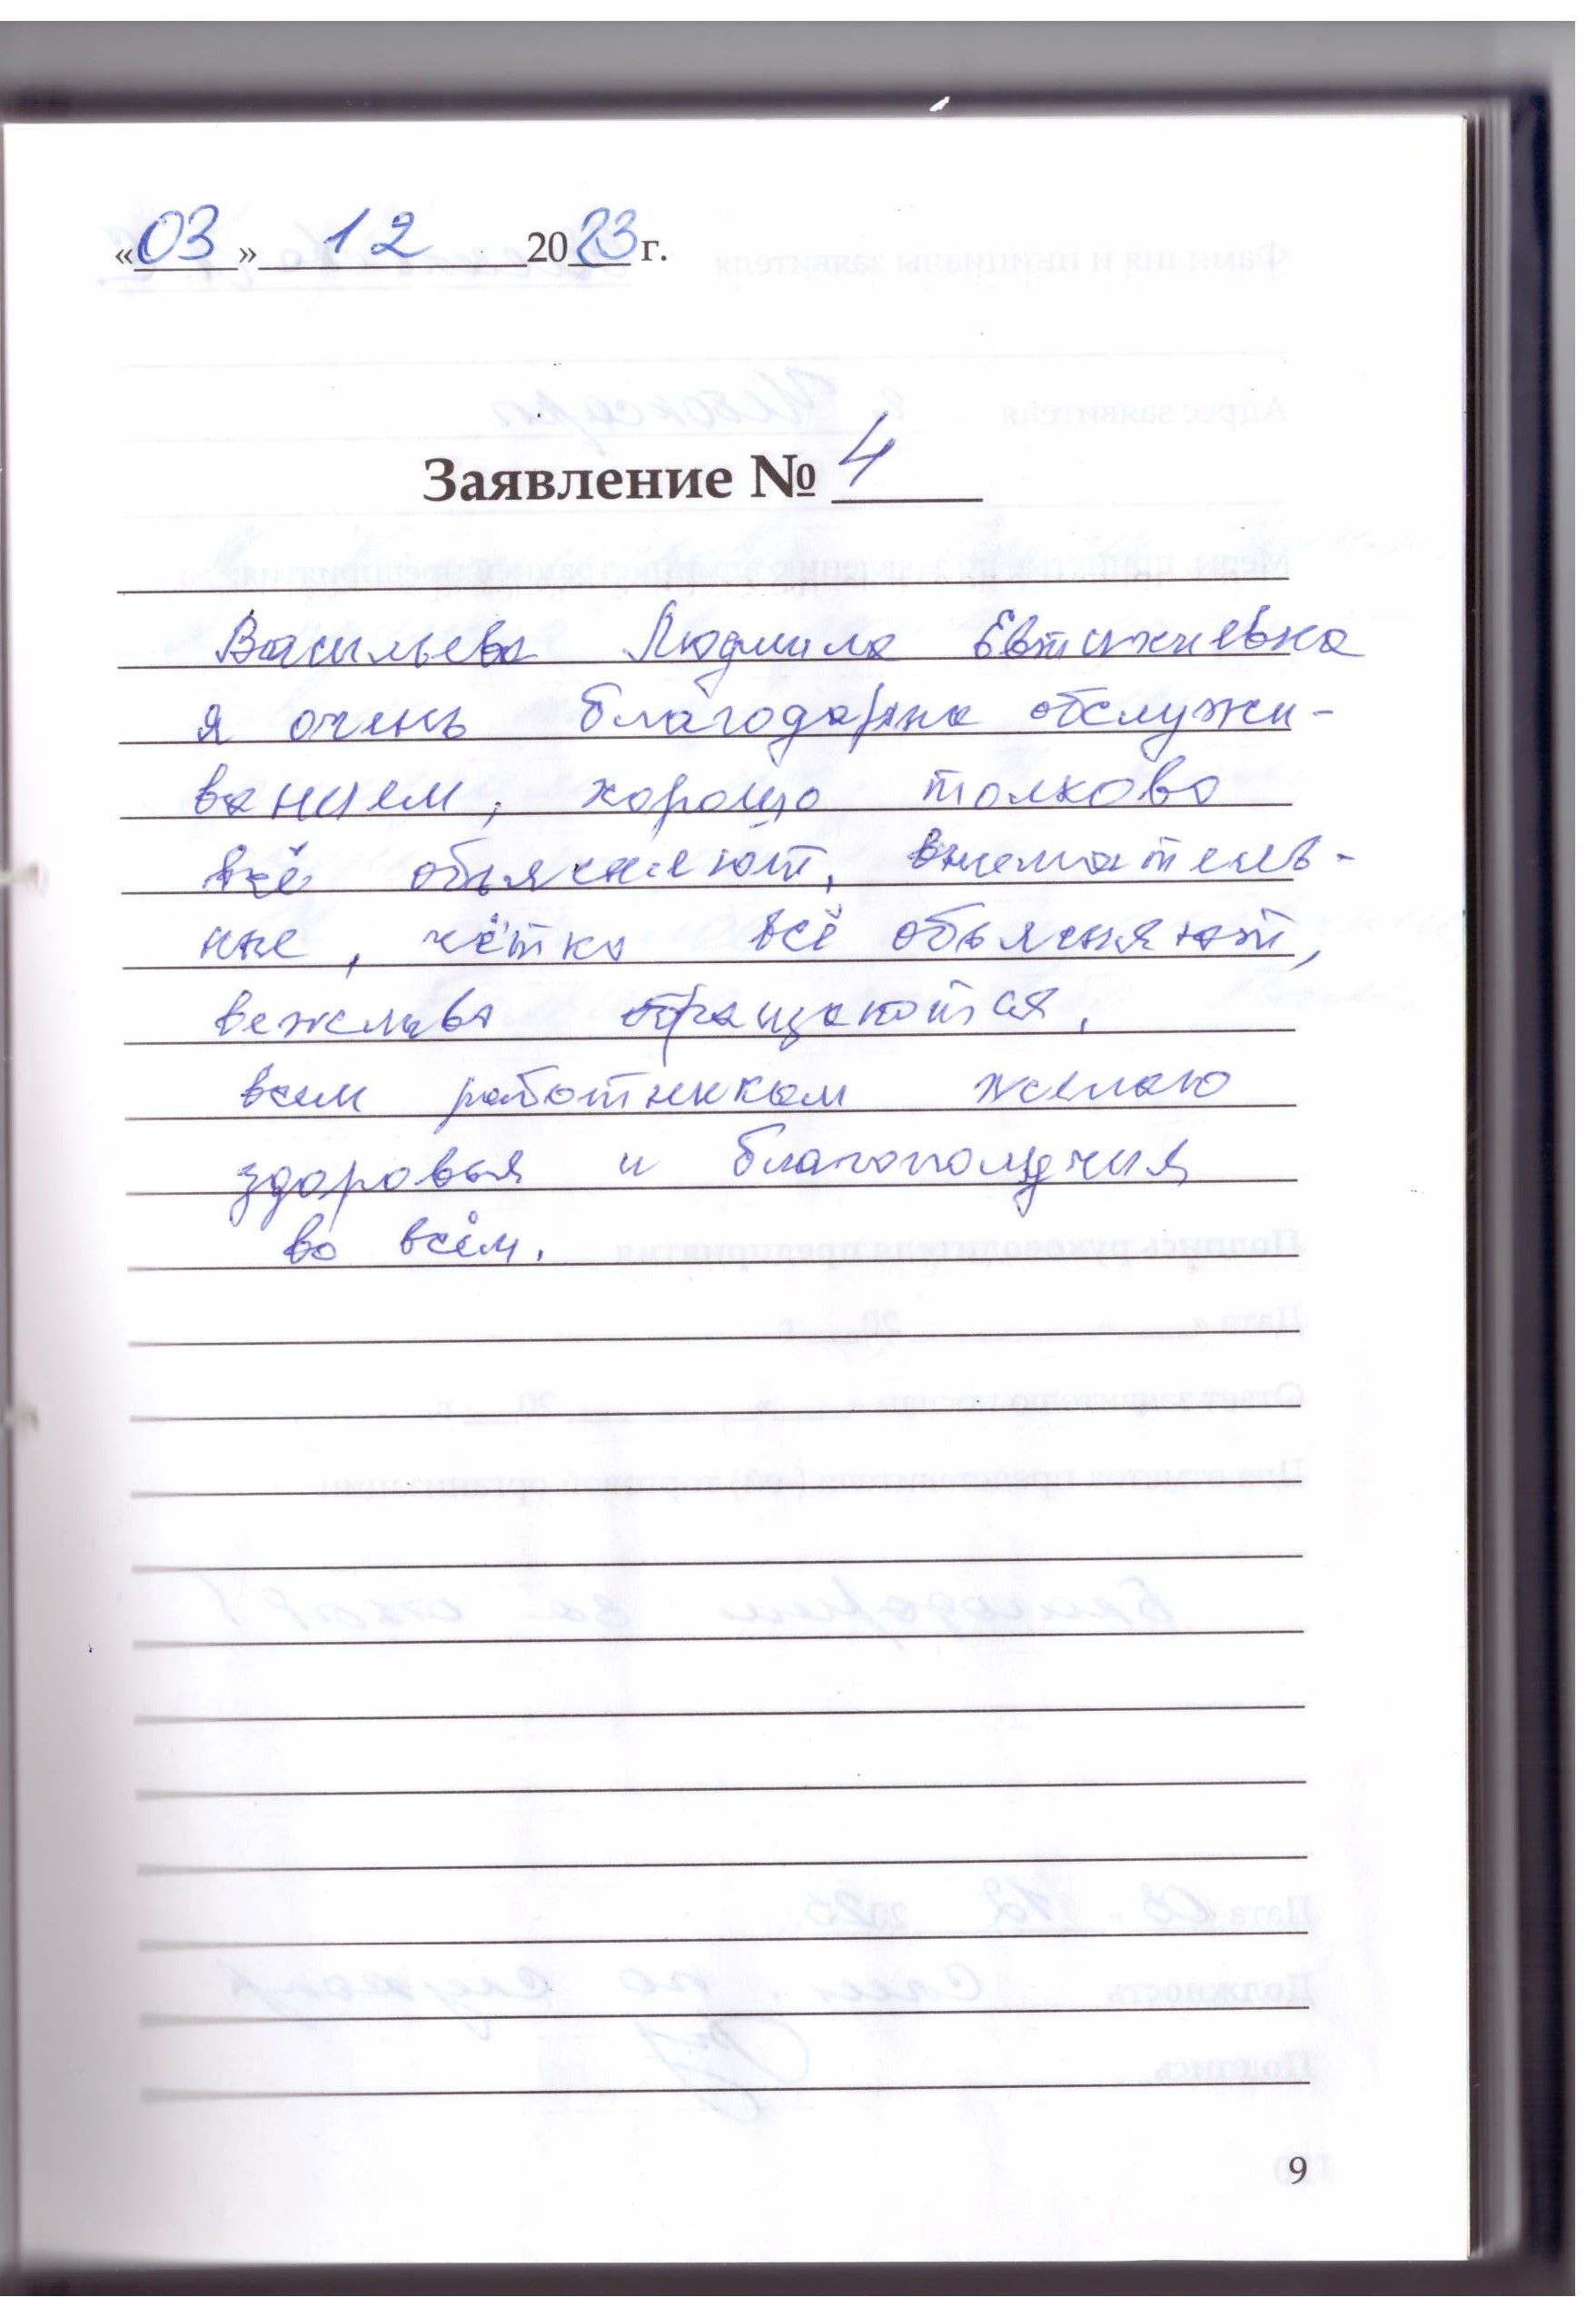 «03» 12 2023 г.
Заявление № 4
Васильева Людмила Евтихиевна
я очень благодарна обслужи-
ванием, хорошо толково
всё объясняют, вниматель-
ные, чётко всё объясняют,
вежливо обращаются,
всем работникам желаю
здоровья и благополучия
во всём.
9